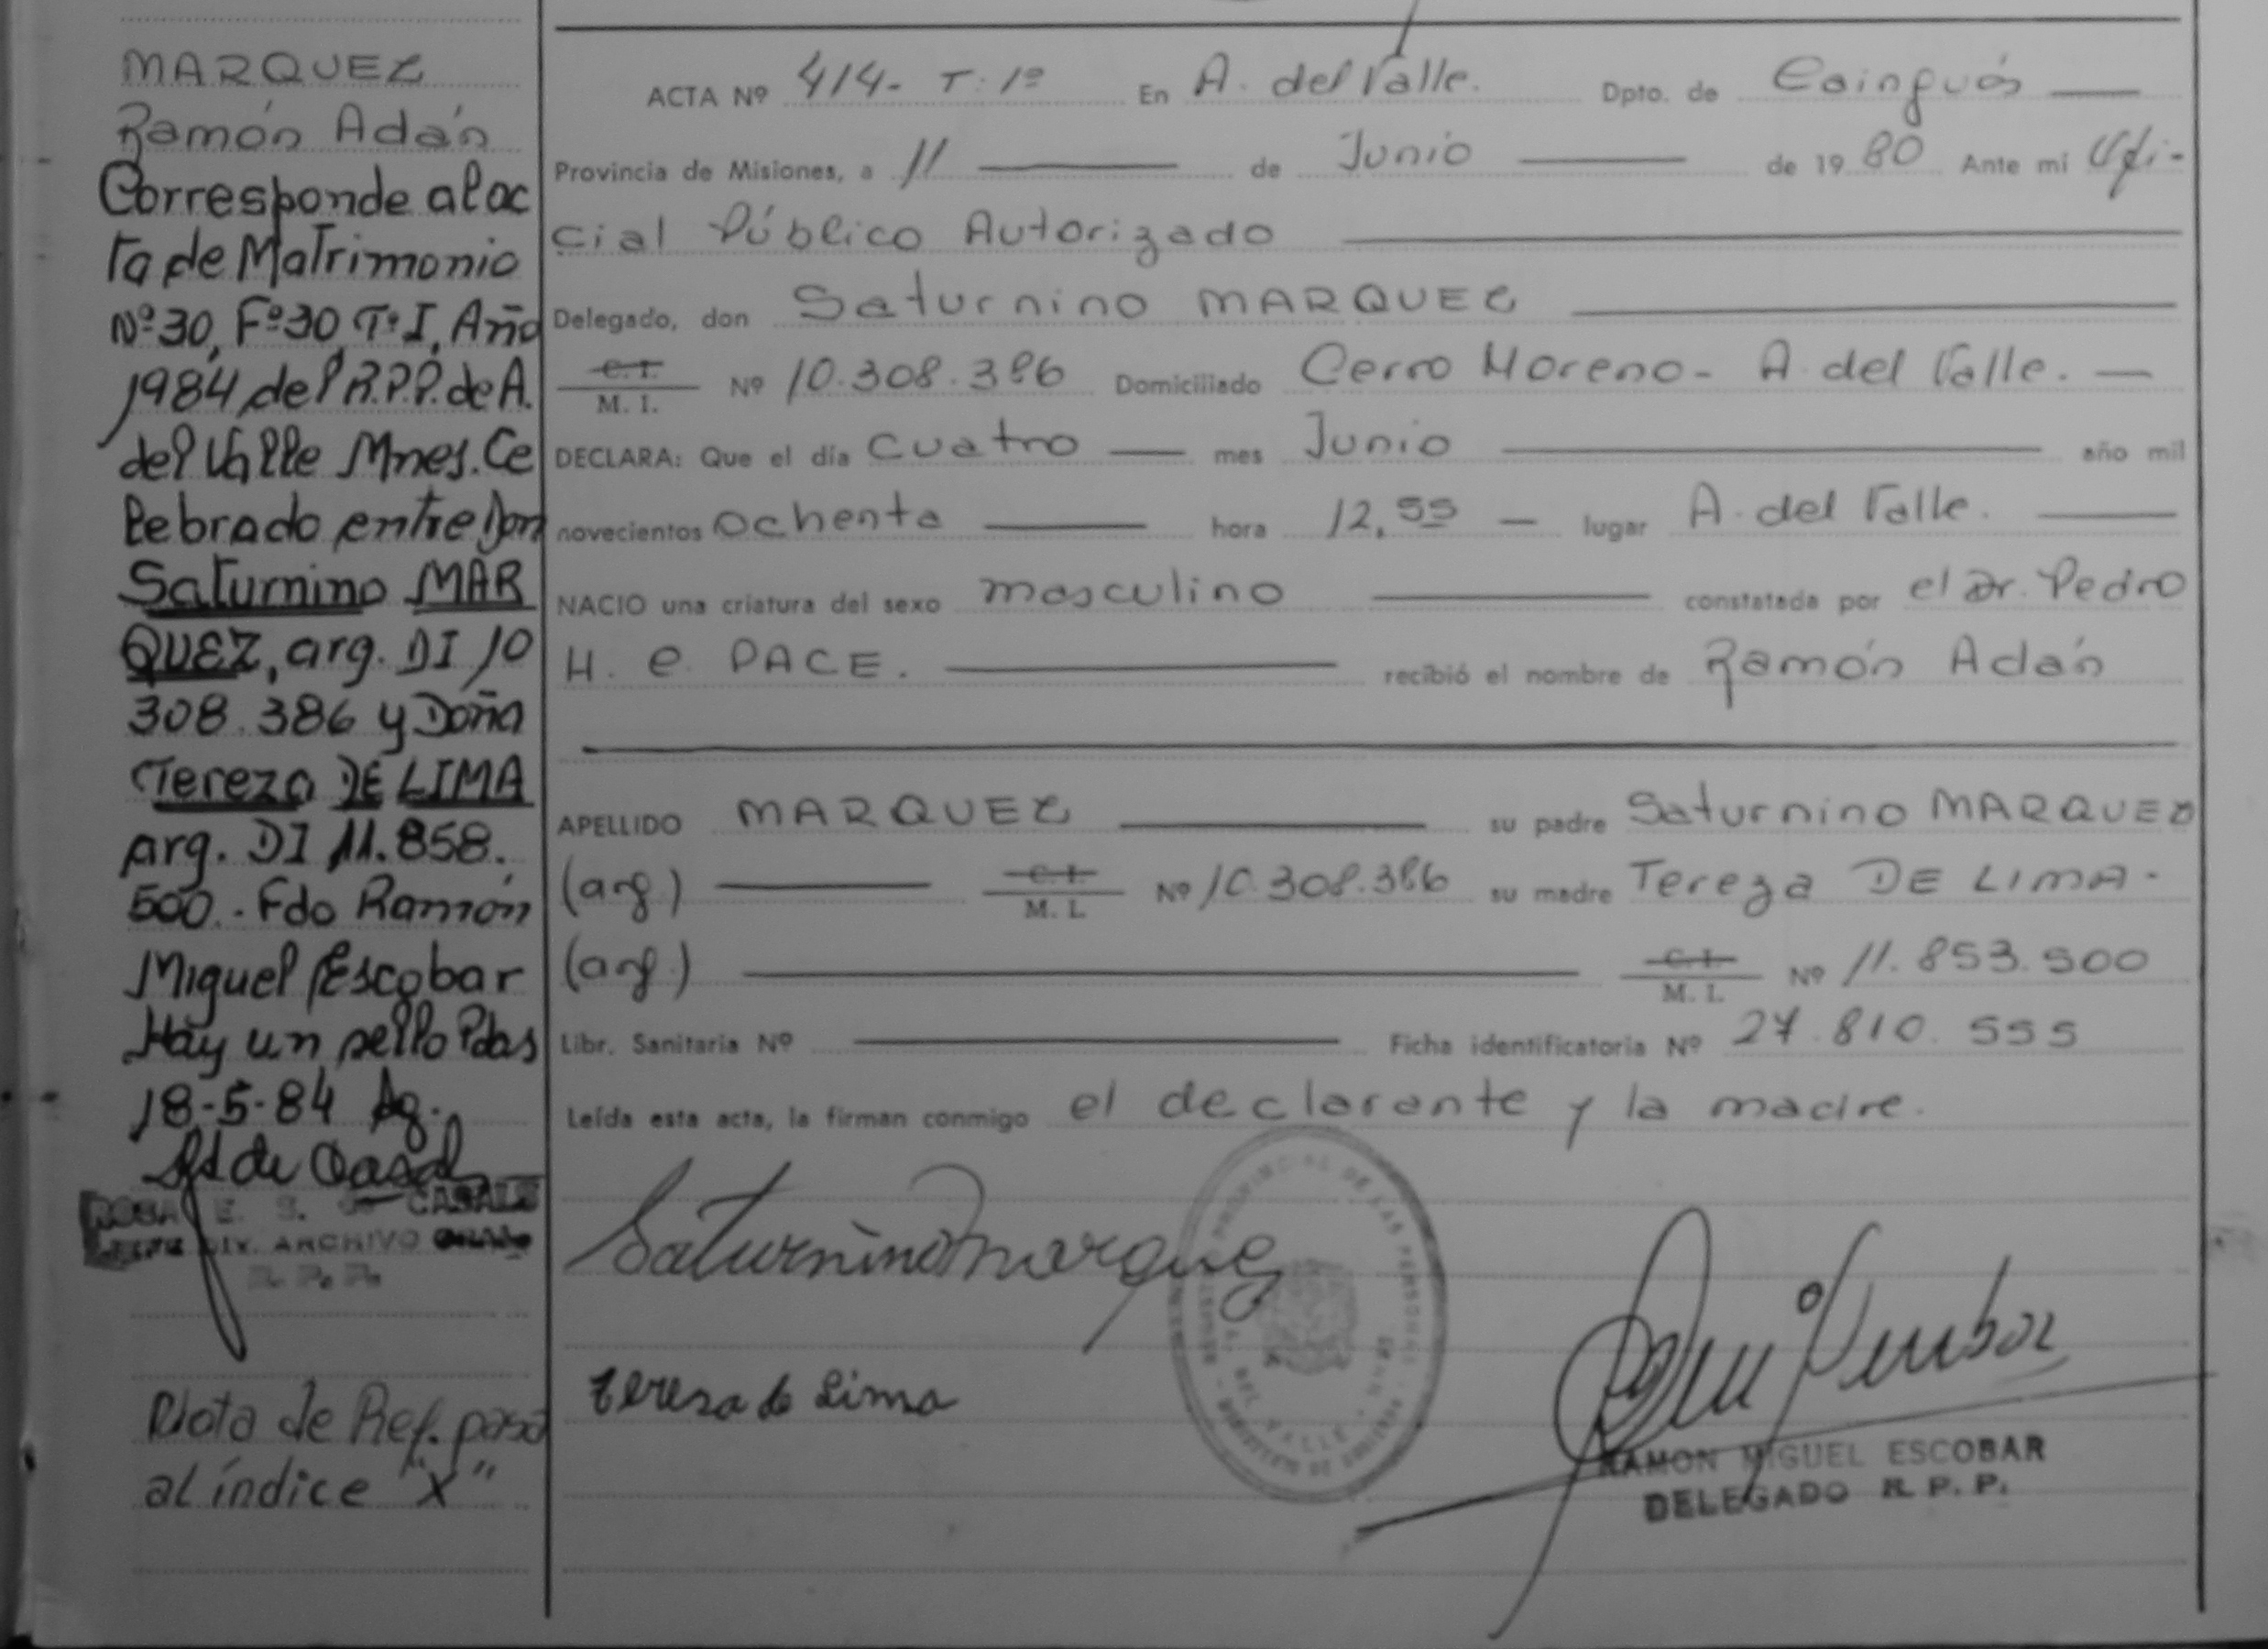 MARQUEZ
Ramón Adán
Corresponde al ac
ta de Matrimonio
Nº 30, Fº 30 Tº I, Año
1984 del R.P.P. de A.
del Valle Mnes. Ce
lebrado entre Don
Saturnino MAR
QUEZ, arg. DI 10
308.386 y Doña
Tereza DE LIMA
arg. DI 11.858.
500.- Fdo Ramón
Miguel Escobar
Hay un sello Pdas
18-5-84
ROSA E. S. de CASALS
JEFE DIV. ARCHIVO GRAL
R. P. P.
Nota de Ref. pasó
al índice "X"
ACTA Nº 414- T: 1º En A. del Valle. Dpto. de Cainguás
Provincia de Misiones, a 11 de Junio de 1980 Ante mí Ofi-
cial Público Autorizado
Delegado, don Saturnino MARQUEZ
C. I. / M. I. Nº 10.308.386 Domiciliado Cerro Moreno - A. del Valle. —
DECLARA: Que el día cuatro — mes Junio año mil
novecientos ochenta hora 12,55 — lugar A. del Valle.
NACIO una criatura del sexo masculino constatada por el Dr. Pedro
H. C. PACE. recibió el nombre de Ramón Adán
APELLIDO MARQUEZ su padre Saturnino MARQUEZ
(arg.) C. I. / M. I. Nº 10.308.386 su madre Tereza DE LIMA -
(arg.) C. I. / M. I. Nº 11.853.500
Libr. Sanitaria Nº Ficha identificatoria Nº 27.810.555
Leída esta acta, la firman conmigo el declarante y la madre.
Saturnino Marquez
Teresa de Lima
RAMON MIGUEL ESCOBAR
DELEGADO R. P. P.